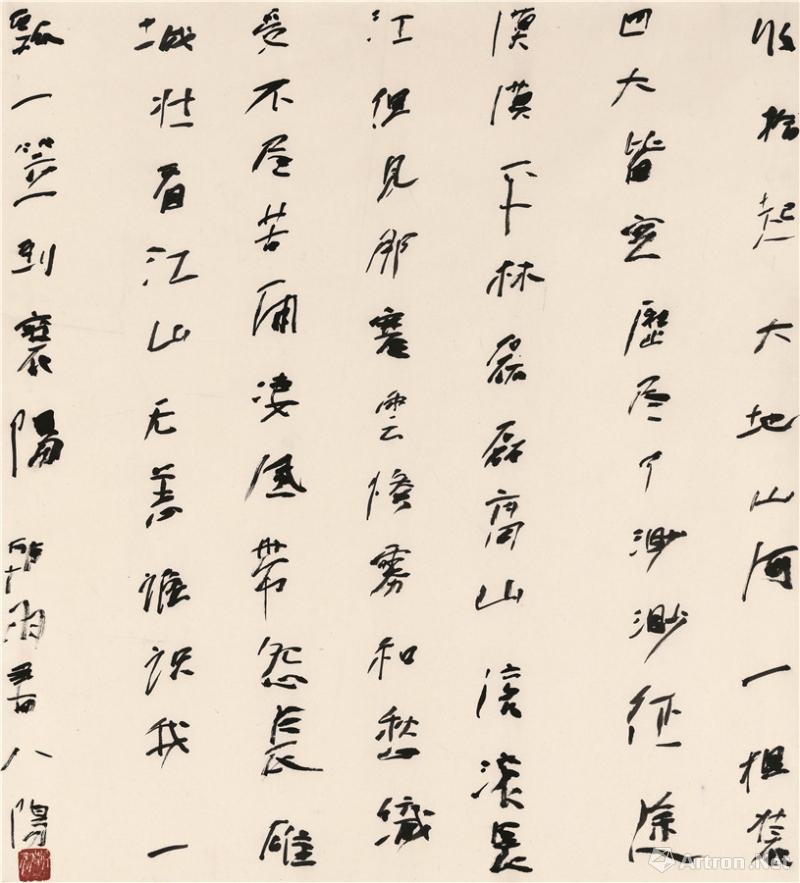 收拾起大地山河一担装
四大皆空歷尽了渺渺征途
漠漠平林磊磊高山滚滚長
江但見那寒雲惨雾和愁織
受不尽苦雨凄風帶怨長雄
城壮看江山无恙誰識我一
瓢一笠到襄陽 雨書八陽
Artron.Net